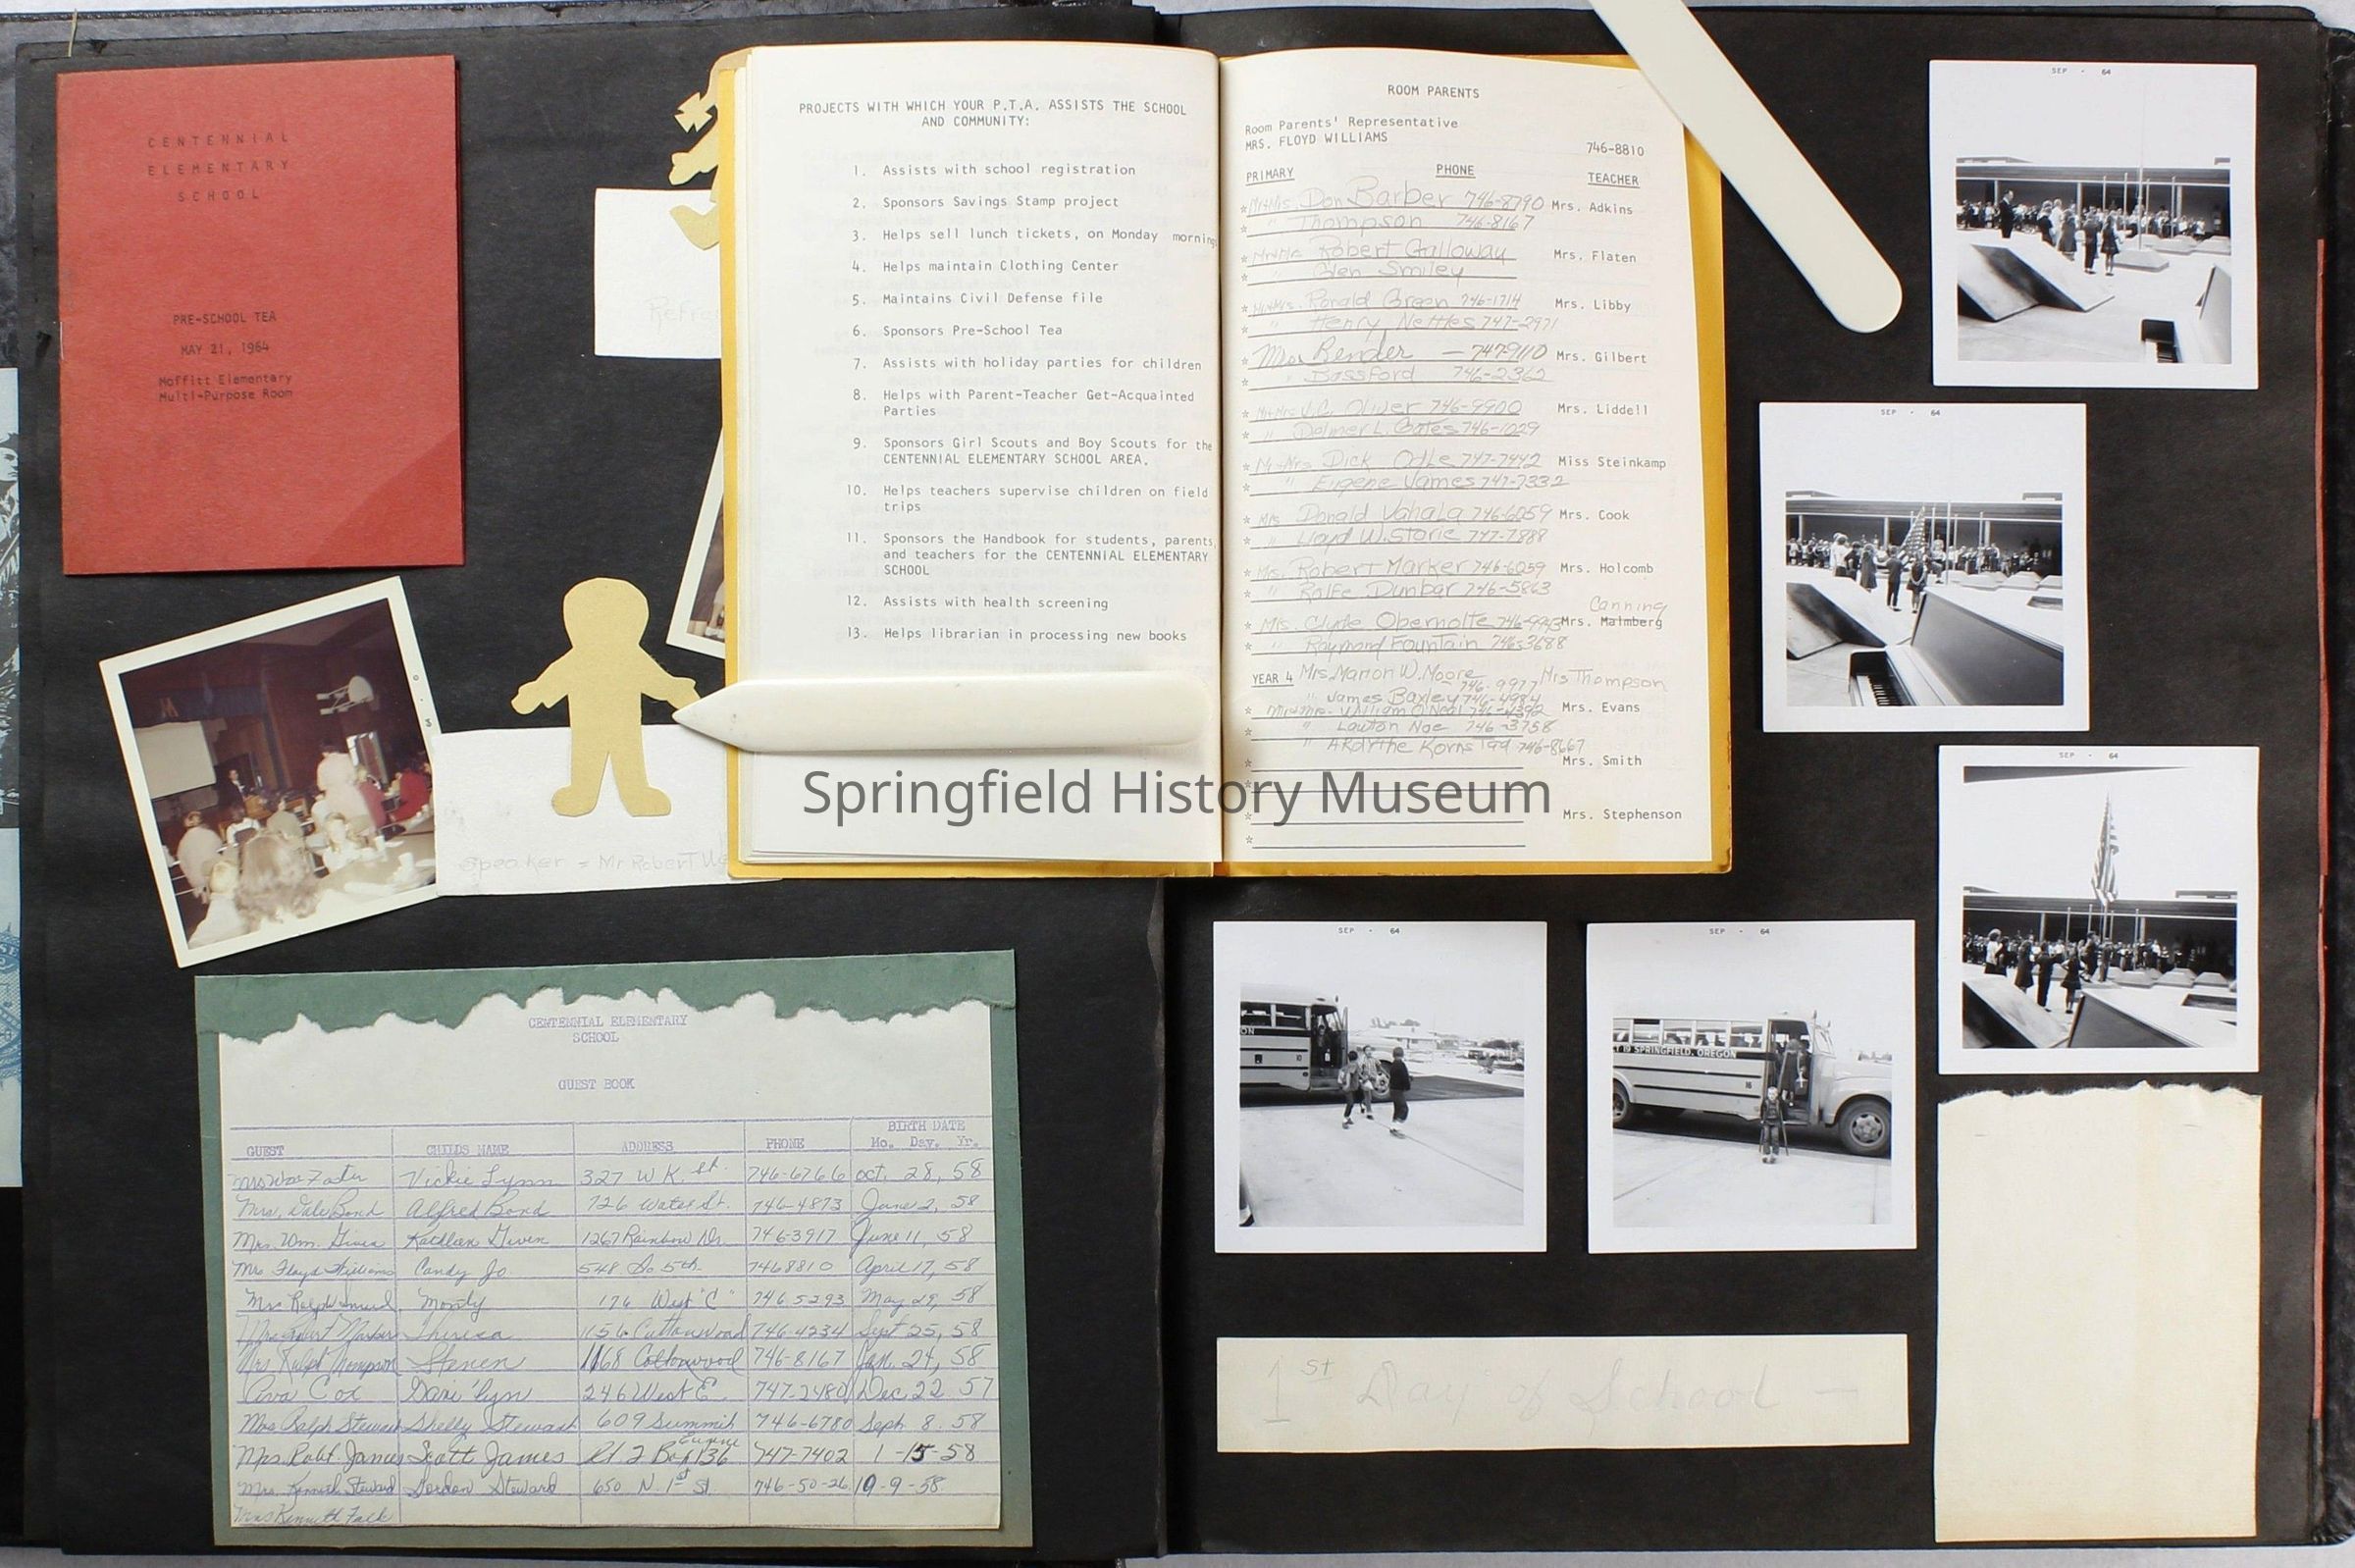 CENTENNIAL
ELEMENTARY
SCHOOL
PRE-SCHOOL TEA
MAY 21, 1964
Moffitt Elementary
Multi-Purpose Room
Refre
Speaker = Mr Robert We
PROJECTS WITH WHICH YOUR P.T.A. ASSISTS THE SCHOOL
AND COMMUNITY:
1. Assists with school registration
2. Sponsors Savings Stamp project
3. Helps sell lunch tickets, on Monday morning
4. Helps maintain Clothing Center
5. Maintains Civil Defense file
6. Sponsors Pre-School Tea
7. Assists with holiday parties for children
8. Helps with Parent-Teacher Get-Acquainted
Parties
9. Sponsors Girl Scouts and Boy Scouts for the
CENTENNIAL ELEMENTARY SCHOOL AREA.
10. Helps teachers supervise children on field
trips
11. Sponsors the Handbook for students, parents,
and teachers for the CENTENNIAL ELEMENTARY
SCHOOL
12. Assists with health screening
13. Helps librarian in processing new books
ROOM PARENTS
Room Parents' Representative
MRS. FLOYD WILLIAMS 746-8810
PRIMARY PHONE TEACHER
* Mr+Mrs. Don Barber 746-8790 Mrs. Adkins
* " Thompson 746-8167
* Mr+Mr. Robert Galloway Mrs. Flaten
* " Glen Smiley
* Mr+Mrs. Ronald Green 746-1714 Mrs. Libby
* " Henry Nettles 747-2971
* Mrs Bender — 747-9110 Mrs. Gilbert
* " Bassford 746-2362
* Mr+Mrs J.C. Oliver 746-9900 Mrs. Liddell
* " Delmer L. Bates 746-1029
* Mr+Mrs Dick Odle 747-7442 Miss Steinkamp
* " Eugene James 747-7332
* Mrs Donald Vahala 746-6059 Mrs. Cook
* " Lloyd W. Storie 747-7888
* Mrs. Robert Marker 746-6059 Mrs. Holcomb
* " Rolfe Dunbar 746-5863
Canning
* Mrs. Clyde Obernolte Mrs. Malmberg
* " Raymond Fountain 746-3688
YEAR 4 Mrs. Marion W. Moore 746-9977 Mrs Thompson
" James Baxley 746-4984
* Mr+Mrs. William O'Neal Mrs. Evans
* " Lawton Noe 746-3758
" Ardythe Korns 746-8667
* Mrs. Smith
*
* Mrs. Stephenson
*
Springfield History Museum
SEP · 64
SEP · 64
SEP · 64
SEP · 64
SEP · 64
ON
10
CT 19 SPRINGFIELD, OREGON
16
1st Day of School —
CENTENNIAL ELEMENTARY
SCHOOL
GUEST BOOK
GUEST CHILDS NAME ADDRESS PHONE BIRTH DATE
Mo. Day. Yr.
Vickie Lynn 327 W K St. 746-6766 Oct. 28, 58
Mrs. Dale Bond Alfred Bond 726 Water St. 746-4873 June 2, 58
Mrs. Wm. Given Kathleen Given 1267 Rainbow Dr. 746-3917 June 11, 58
Mrs Floyd Williams Candy Jo. 548 So 5th. 7468810 April 17, 58
Mrs Ralph Monty 176 West "C" 746.5293 May 29, 58
Mrs Robert Marker Theresa 1156 Cottonwood 746-4234 Sept 25, 58
Mrs Ralph Thompson Steven 1168 Cottonwood 746-8167 Jan. 24, 58
Ava Cox 246 West E. 747-2480 Dec 22 57
Mrs Ralph Stewart Shelly Stewart 609 Summit 746-6780 Sept 8. 58
Mrs. Robt. James Scott James Rt 2 Box 136 Eugene 747-7402 1-15-58
Mrs. Kenneth Steward Gordon Steward 650 N. 1st St 746-50-26 10-9-58
Mrs Kenneth Falk